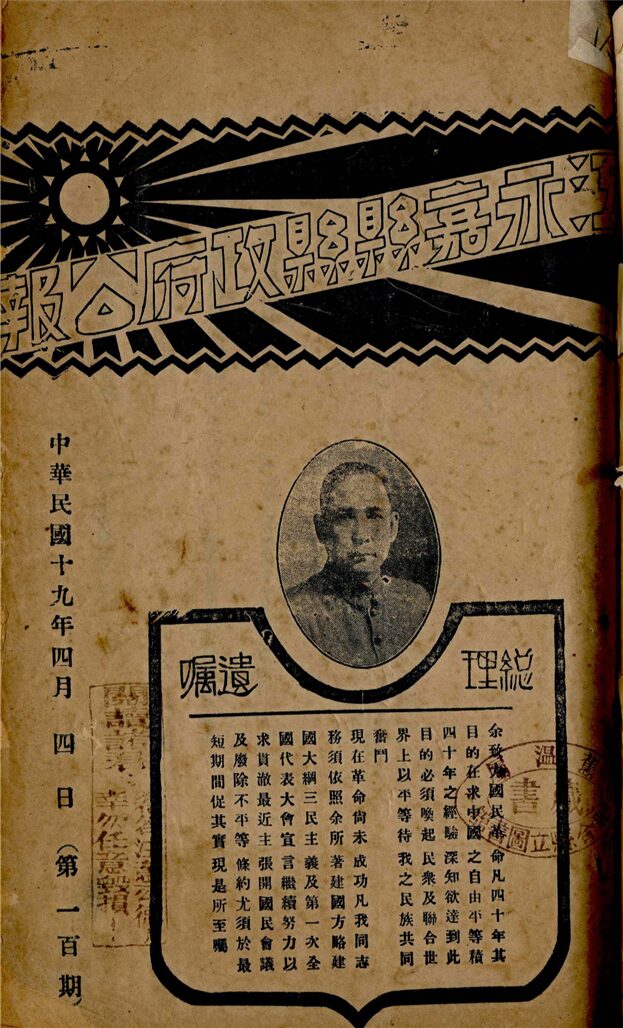 永嘉縣縣政府公報
中華民國十九年四月四日(第一百期)
總理
遺囑
余致力國民革命凡四十年其
目的在求中國之自由平等積
四十年之經驗深知欲達到此
目的必須喚起民衆及聯合世
界上以平等待我之民族共同
奮鬥
現在革命尚未成功凡我同志
務須依照余所著建國方略建
國大綱三民主義及第一次全
國代表大會宣言繼續努力以
求貫澈最近主張開國民會議
及廢除不平等條約尤須於最
短期間促其實現是所至囑